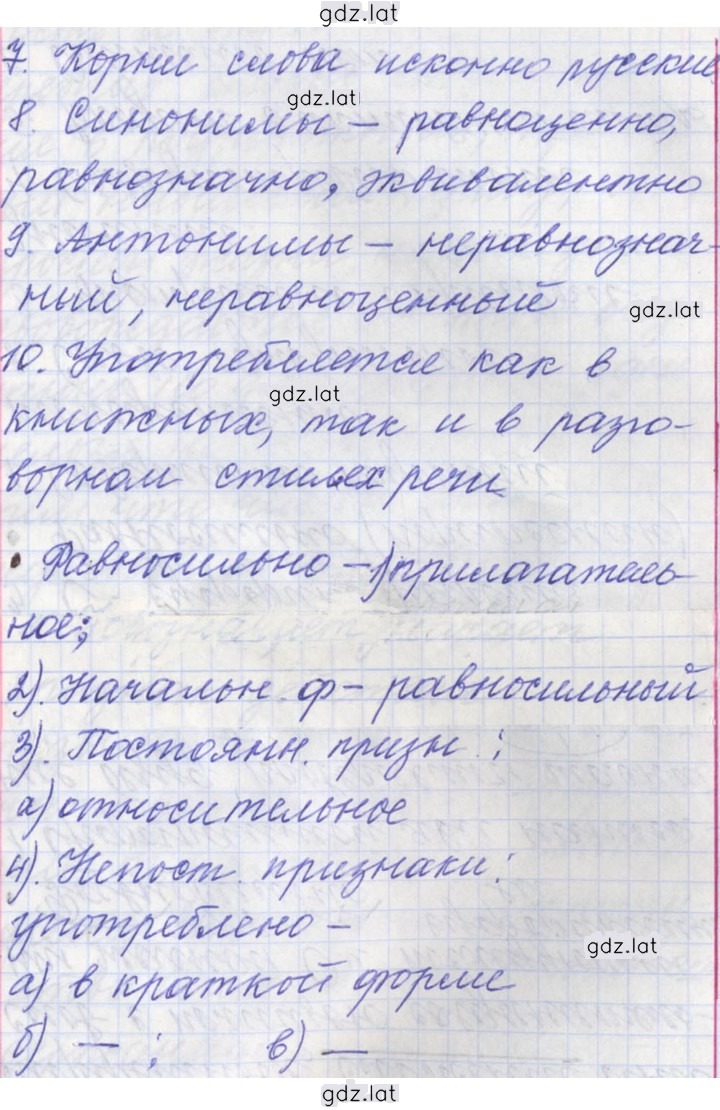 gdz.lat
7. Корни слова исконно русские
gdz.lat
8. Синонимы – равноценно,
равнозначно, эквивалентно
9. Антонимы – неравнознач-
ный, неравноценный
gdz.lat
10. Употребляется как в
gdz.lat
книжных, так и в разго-
ворном стилех речи
• Равносильно – 1) прилагатель-
ное;
2). Начальн. ф – равносильный
3). Постоянн. призн :
а) относительное
4). Непост. признаки:
употреблено –
gdz.lat
а) в краткой форме
б) — ; в) —
gdz.lat